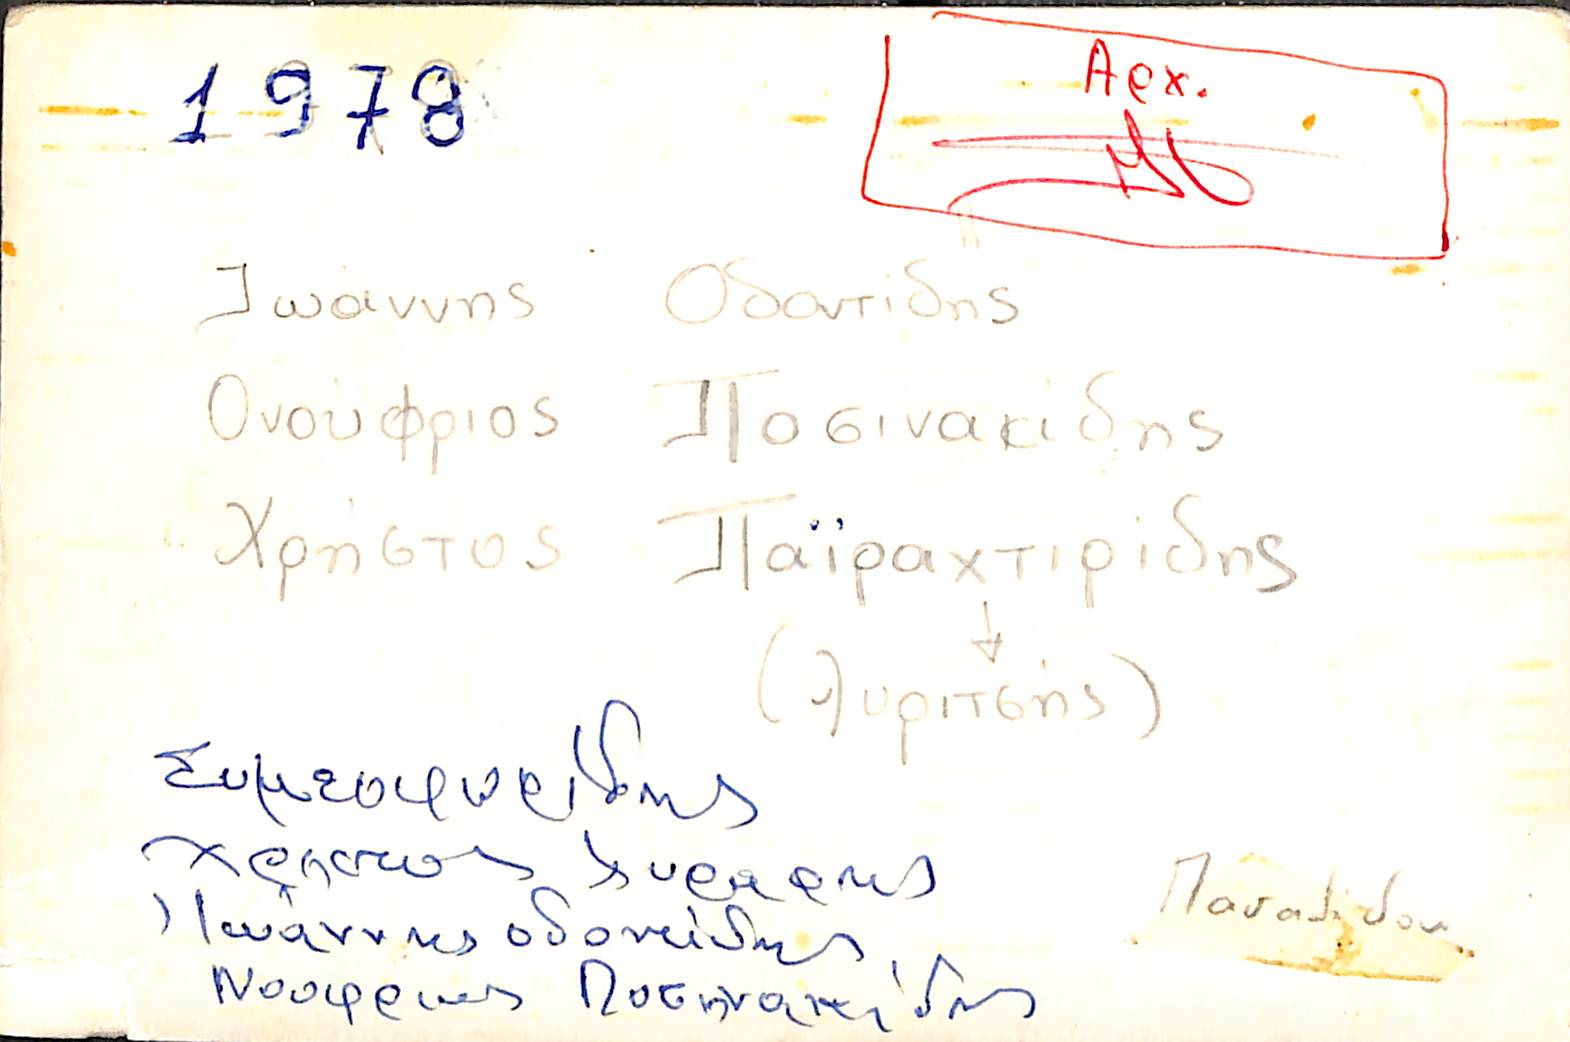 1978
Αρχ.
Ιωάννης Οδοντίδης
Ονούφριος Ποσινακίδης
Χρήστος Παϊραχτιρίδης
(λυριτσής)
Χρηστος λυραρης
Ιωάννης οδοντίδης
Νουφριος Ποσηνακίδης